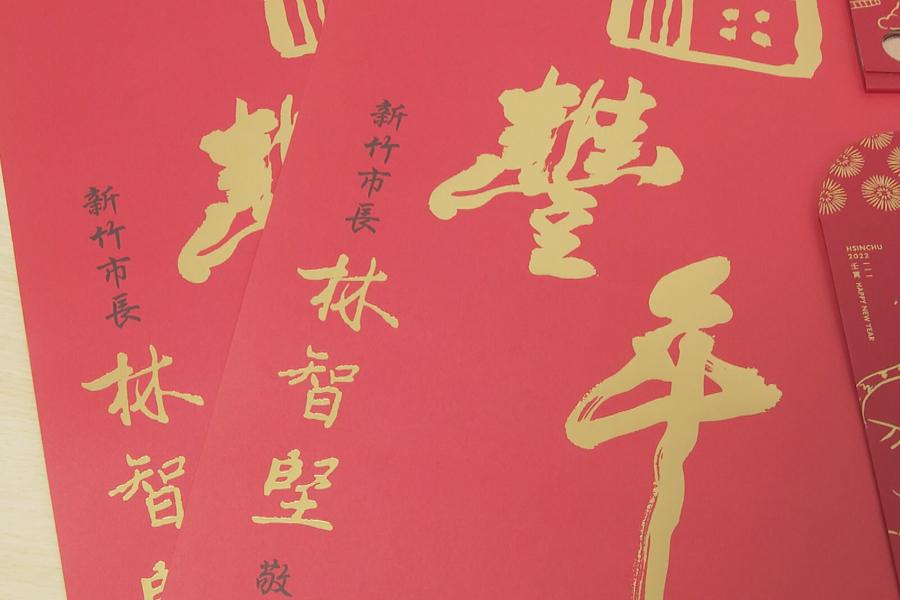 豐年
新竹市長
林智堅
敬
新竹市長
林智
HSINCHU
2022
壬寅
HAPPY NEW YEAR